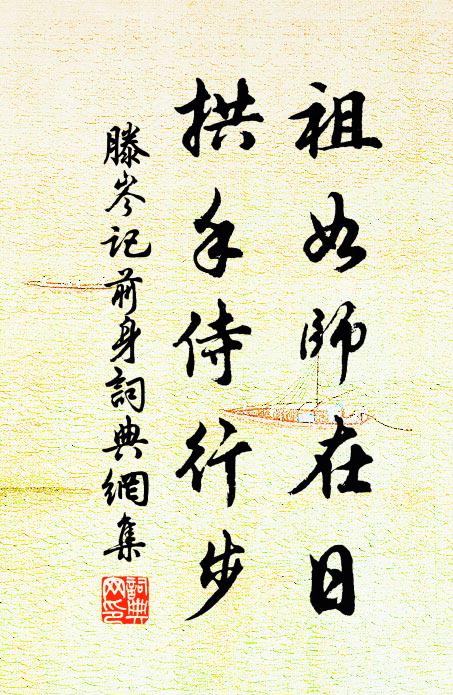 祖如師在日
拱手侍行步
滕岑記前身詞典網集
詞典
网印